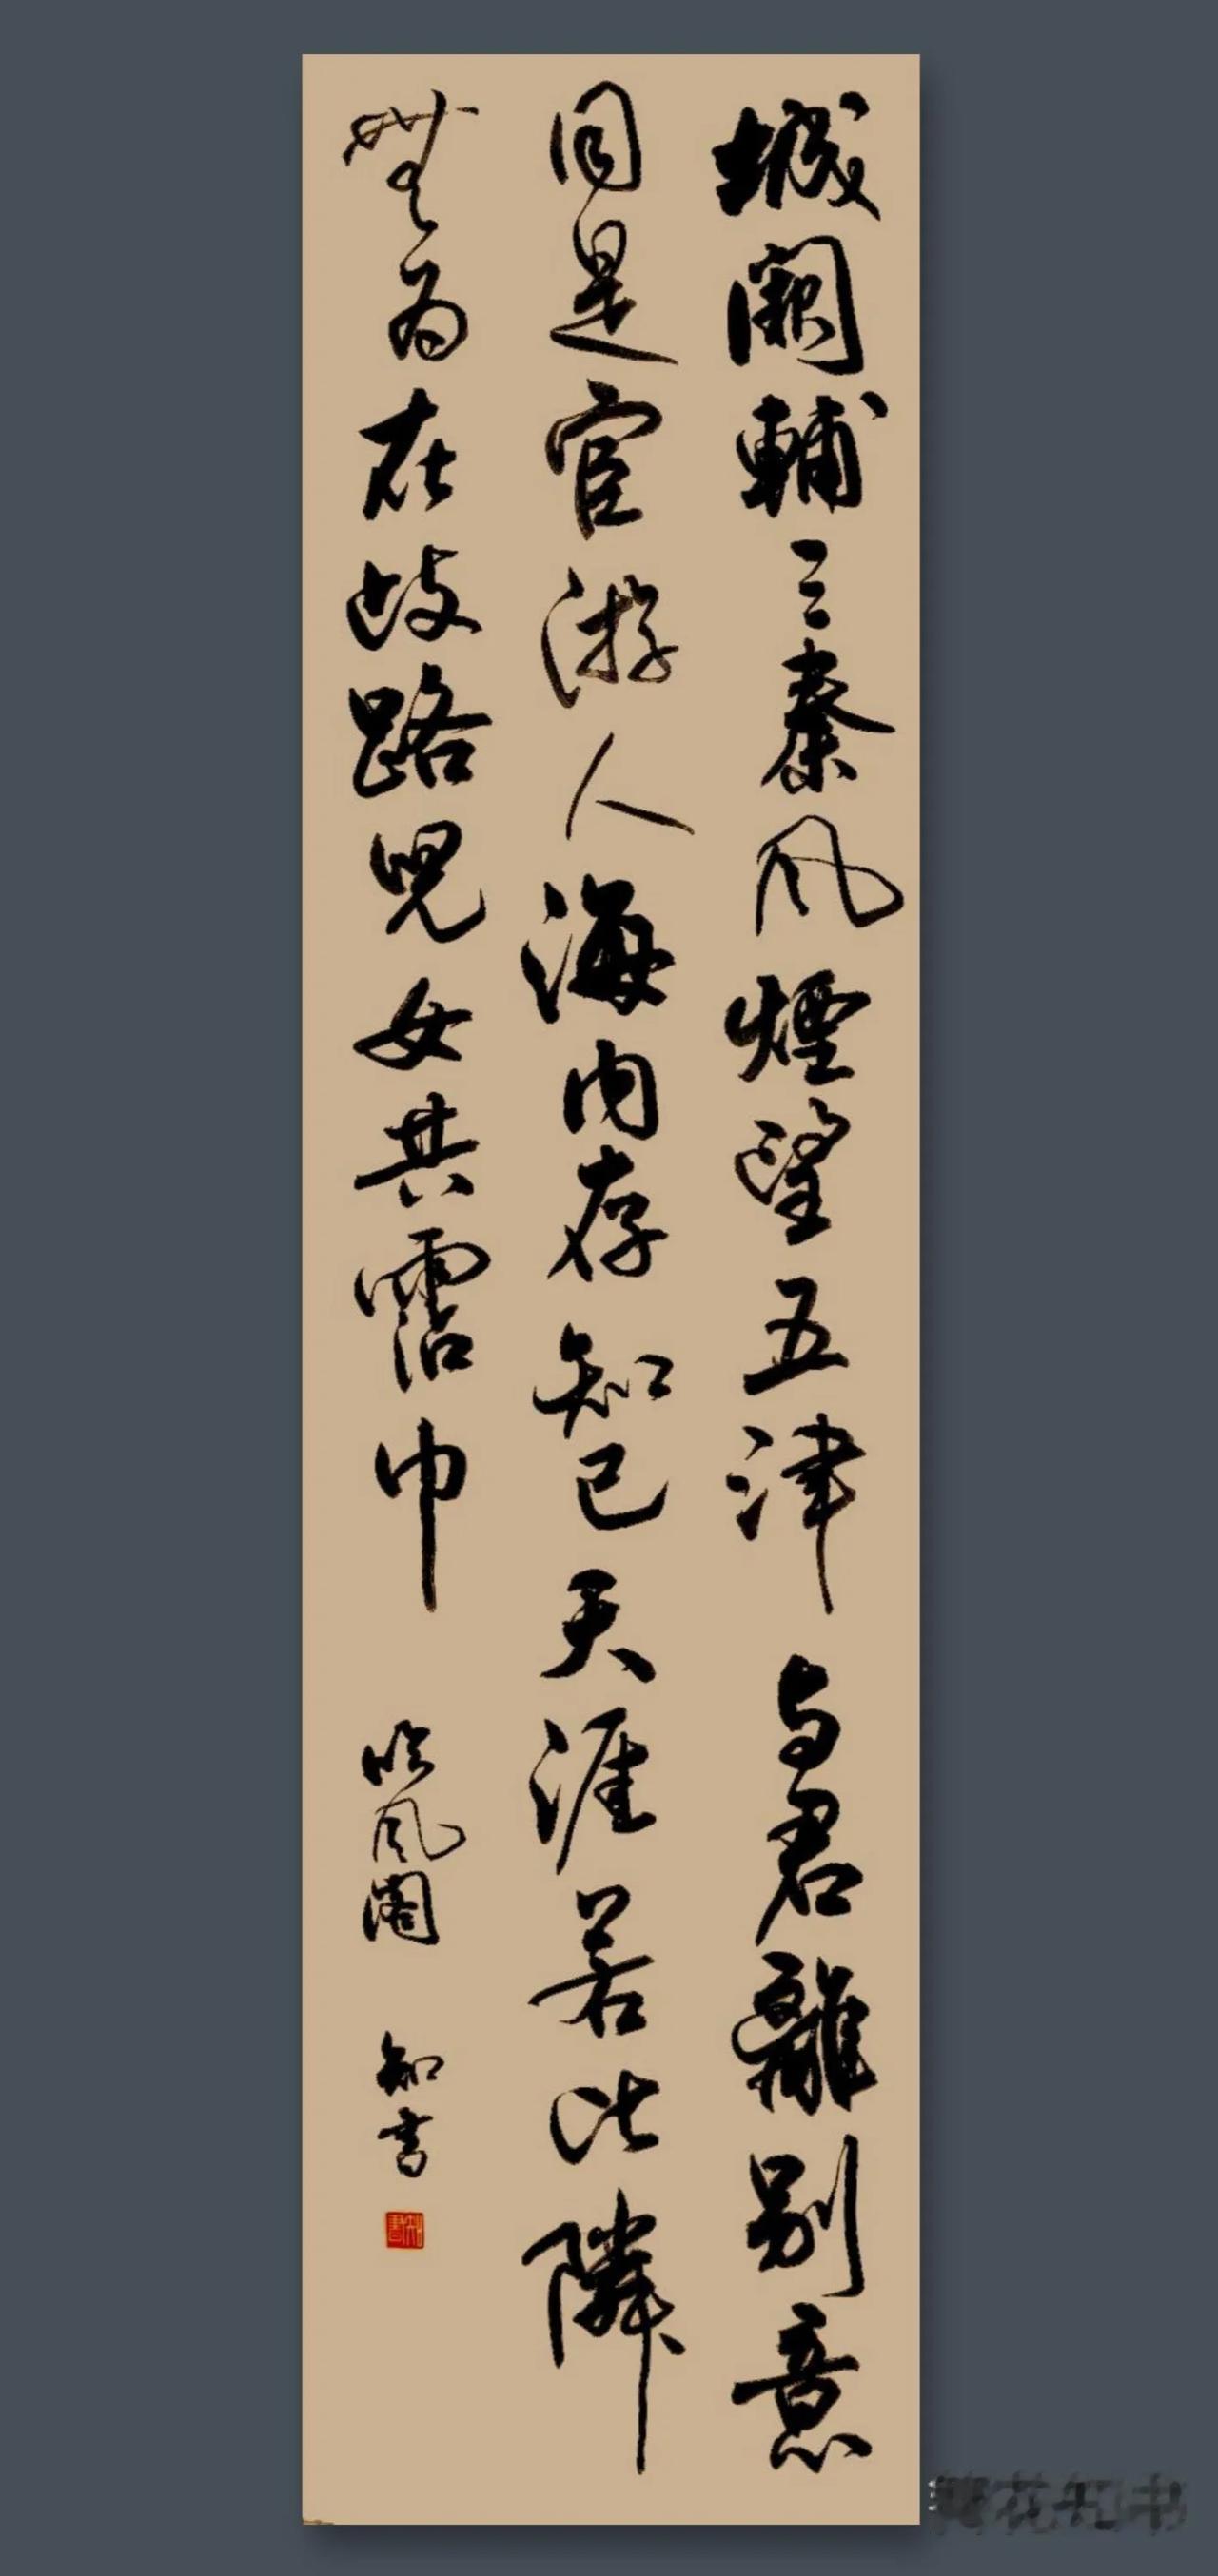 城闕輔三秦风煙望五津与君離別意
同是宦游人海内存知己天涯若比隣
無为在歧路兒女共霑巾
吟风閣 知書
知書
花知书